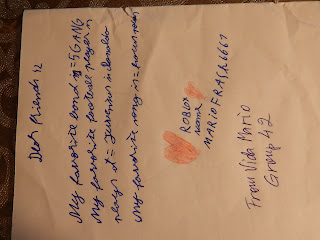 Dear friends 42
My favorite band is=5GANG
My favorite football player is
plays at= Juventus is Ronaldo
My favorite song is=
ROBLOX
name
MARIOFRASR6667
From Vida Mario
Group 42